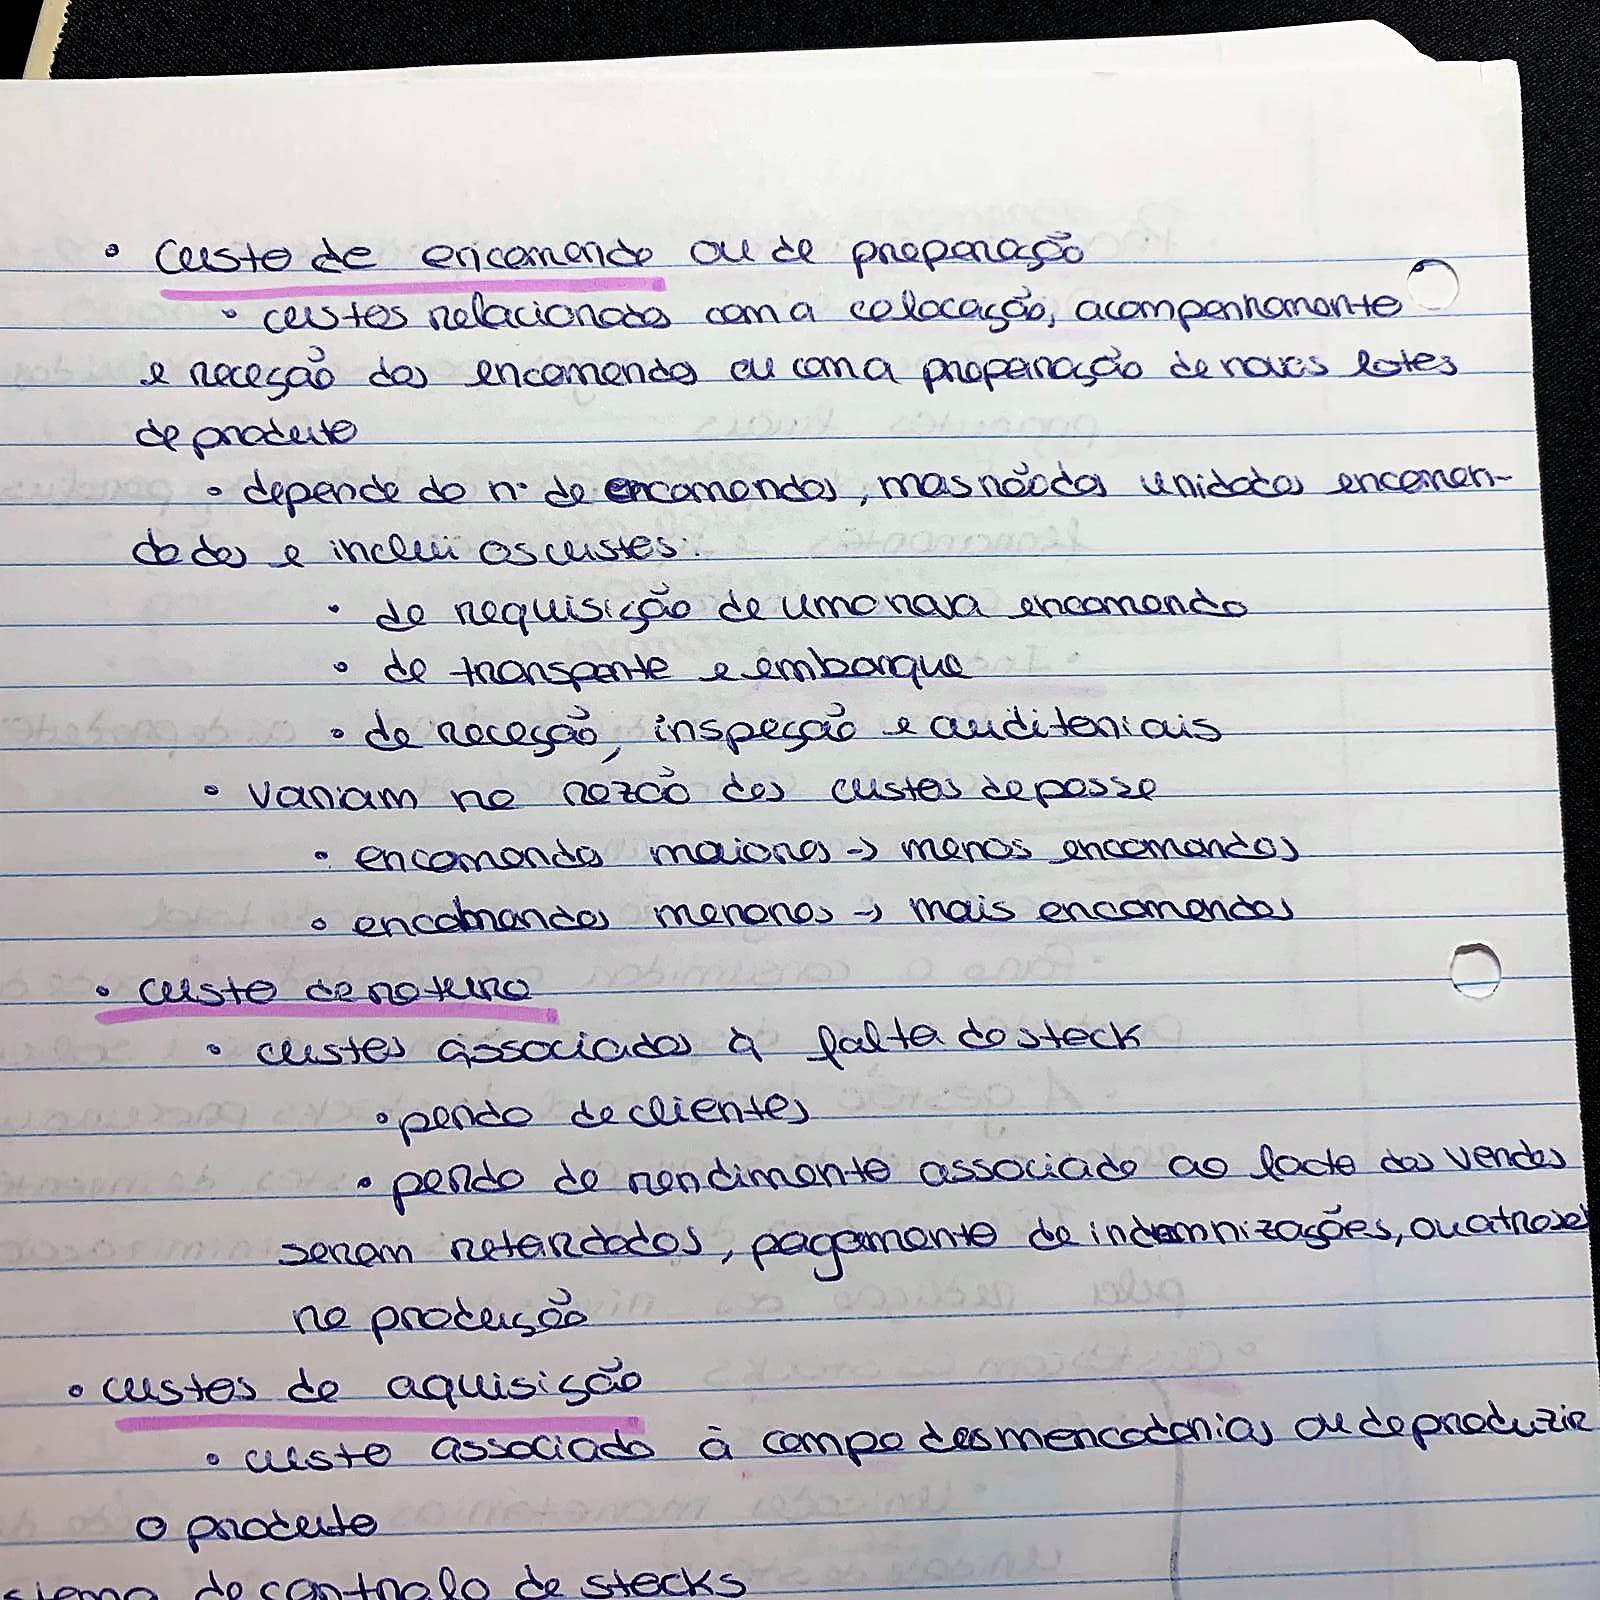 • Custo de encomenda ou de preparação
• custos relacionados com a colocação, acompanhamento
e receção das encomendas ou com a preparação de novos lotes
de produto
• depende do nº de encomendas, mas não das unidades encomen-
dadas e inclui os custos:
• de requisição de uma nova encomenda
• de transporte e embarque
• de receção, inspeção e auditoriais
• variam na razão dos custos de posse
• encomendas maiores → menos encomendas
• encomendas menores → mais encomendas
• custo de rotura
• custos associados à falta do stock
• perda de clientes
• perda de rendimento associado ao facto das vendas
serem retardadas, pagamento de indemnizações, ou atrasos
na produção
• custos de aquisição
• custo associado à compa das mercadorias ou de produzir
o produto
stema de controlo de stocks